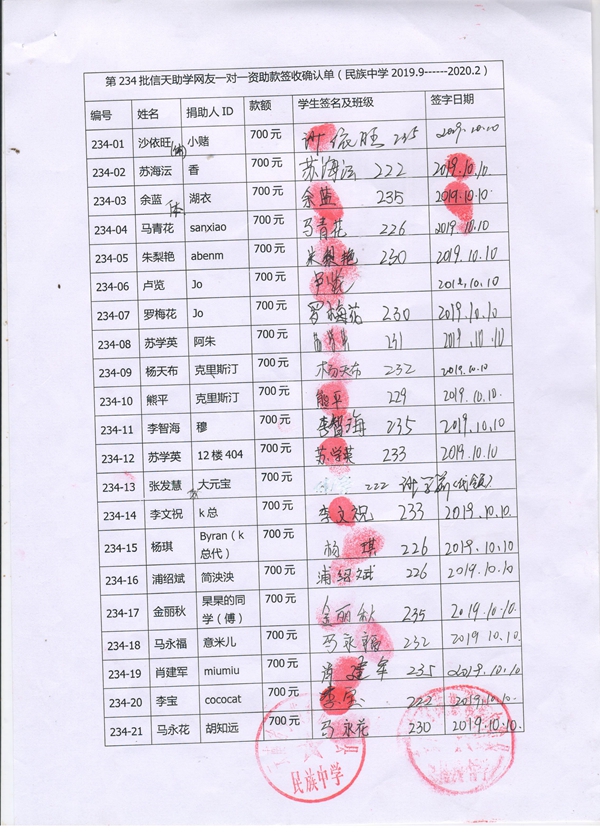 第 234 批信天助学网友一对一资助款签收确认单（民族中学 2019.9------2020.2）
编号 姓名 捐助人 ID 款额 学生签名及班级 签字日期
234-01 沙依旺 小赌 700 元 依旺 235 2019.10.10
234-02 苏海沄 香 700 元 苏海沄 222 2019.10.10.
234-03 余蓝 湖衣 700 元 余蓝 235 2019.10.10.
234-04 马青花 sanxiao 700 元 马青花 226 2019.10.10
234-05 朱梨艳 abenm 700 元 朱梨艳 230 2019.10.10
234-06 卢览 Jo 700 元 卢览 2019.10.10
234-07 罗梅花 Jo 700 元 罗梅花 230 2019.10.10
234-08 苏学英 阿朱 700 元 231 2019.10.10
234-09 杨天布 克里斯汀 700 元 杨天布 232 2019.10.10
234-10 熊平 克里斯汀 700 元 熊平 229 2019.10.10
234-11 李智海 穆 700 元 李智海 235 2019.10.10
234-12 苏学英 12 楼 404 700 元 苏学英 233 2019.10.10
234-13 张发慧 大元宝 700 元 222 (代领)
234-14 李文祝 k 总 700 元 李文祝 233 2019.10.10.
234-15 杨琪 Byran（k 总代） 700 元 杨琪 226 2019.10.10
234-16 浦绍斌 简泱泱 700 元 浦绍斌 226 2019.10.10
234-17 金丽秋 杲杲的同学（傅） 700 元 金丽秋 235 2019.10.10.
234-18 马永福 意米儿 700 元 马永福 232 2019.10.10
234-19 肖建军 miumiu 700 元 肖建军 235 2019.10.10
234-20 李宝 cococat 700 元 李宝 222 2019.10.10.
234-21 马永花 胡知远 700 元 马永花 230 2019.10.10.
民族中学